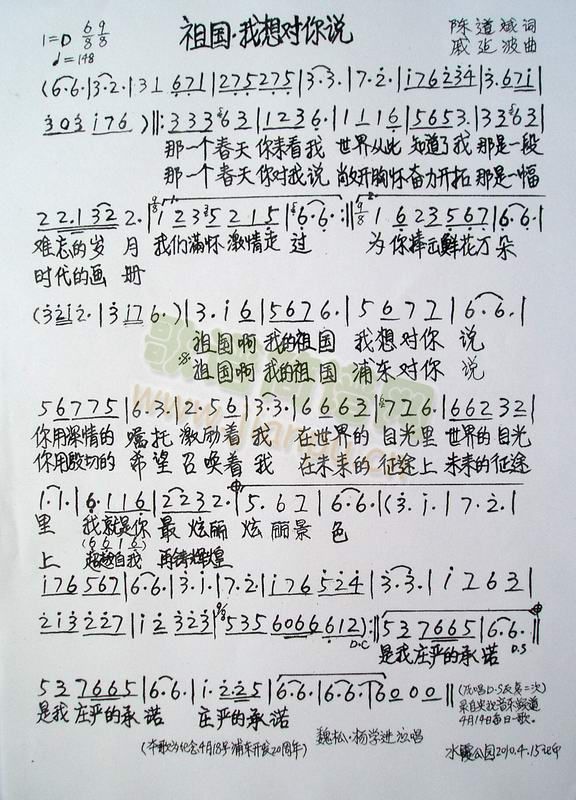 祖国·我想对你说
1=D 6/8 9/8
♩.=148
陈道斌词
戚建波曲
(6.6.|3.2.|31 671|275275|3.3.|7.2.|i76234|3.67i|
303 i76)‖:333 63|1236.|1116|5653.|33 63|
那一个春天你来看我 世界从此 知道了我 那是一段
那一个春天你对我说 敞开胸怀奋力开拓 那是一幅
22.132 2.|1235215|6.6.:‖1623567|6.6.|
难忘的岁 月 我们满怀激情走 过 为你捧出鲜花万朵
时代的画 册
(3212.|3i76.)|3.i6|5676.|5677|6.6.|
祖国啊 我的祖国 我想对你 说
祖国啊 我的祖国 浦东对你 说
56775|6.3.|2.56|3.3.|6663|726.|66232|
你用深情的 嘱托 激励着 我 在世界的 目光里 世界的目光
你用殷切的 希望 召唤着 我 在未来的 征途上 未来的征途
1.1.|6.116|2232.|5.67|6.6.|(3.i.|7.2.|
里 我就是你 最 炫丽 炫丽景 色
(6616)
上 超越自我 再铸辉煌
i76567|6.6.|3.i.|7.2|i76524|3.3.|i263|
213227|i2323|5356066612):‖537665|6.6.‖
D.C D.S
是我庄严的承诺
537665|6.6.|i.225|6.6.|6.6.|6000‖
是我庄严的承 诺 庄严的承诺
(次唱D.S反复二次)
采自央视音乐频道
4月14日每日一歌。
(本歌为纪念4月18号浦东开发20周年)
魏松·杨学进演唱
水霞公园2010.4.15